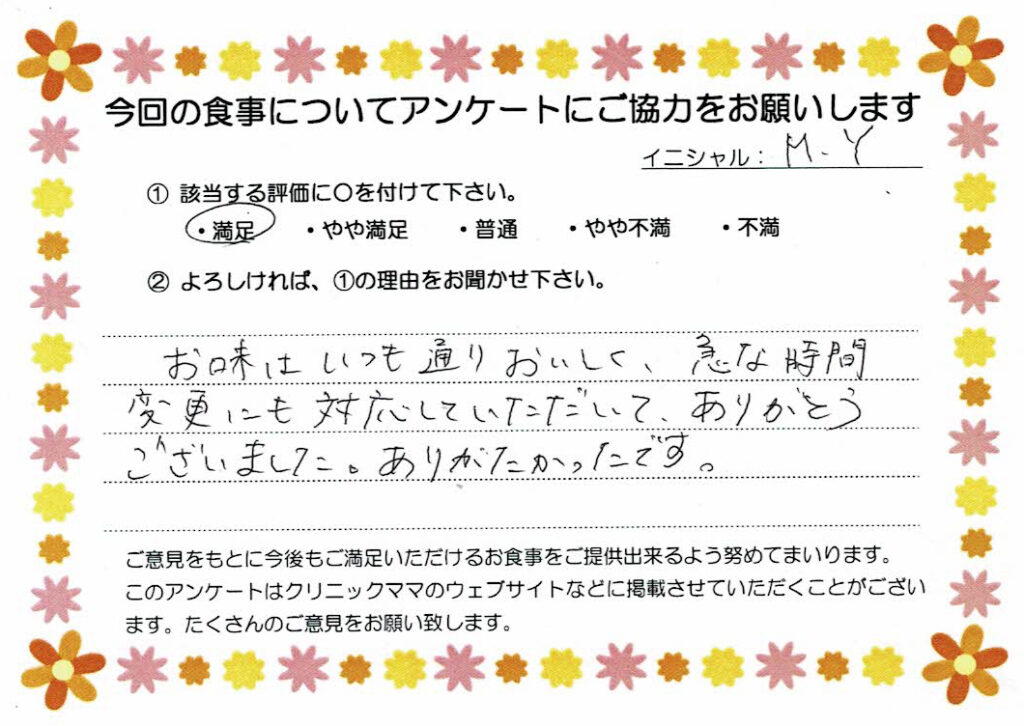 今回の食事についてアンケートにご協力をお願いします
イニシャル： M.Y
① 該当する評価に〇を付けて下さい。
・満足 ・やや満足 ・普通 ・やや不満 ・不満
② よろしければ、①の理由をお聞かせ下さい。
お味はいつも通りおいしく、急な時間
変更にも対応していただいて、ありがとう
ございました。ありがたかったです。
ご意見をもとに今後もご満足いただけるお食事をご提供出来るよう努めてまいります。
このアンケートはクリニックママのウェブサイトなどに掲載させていただくことがござい
ます。たくさんのご意見をお願い致します。